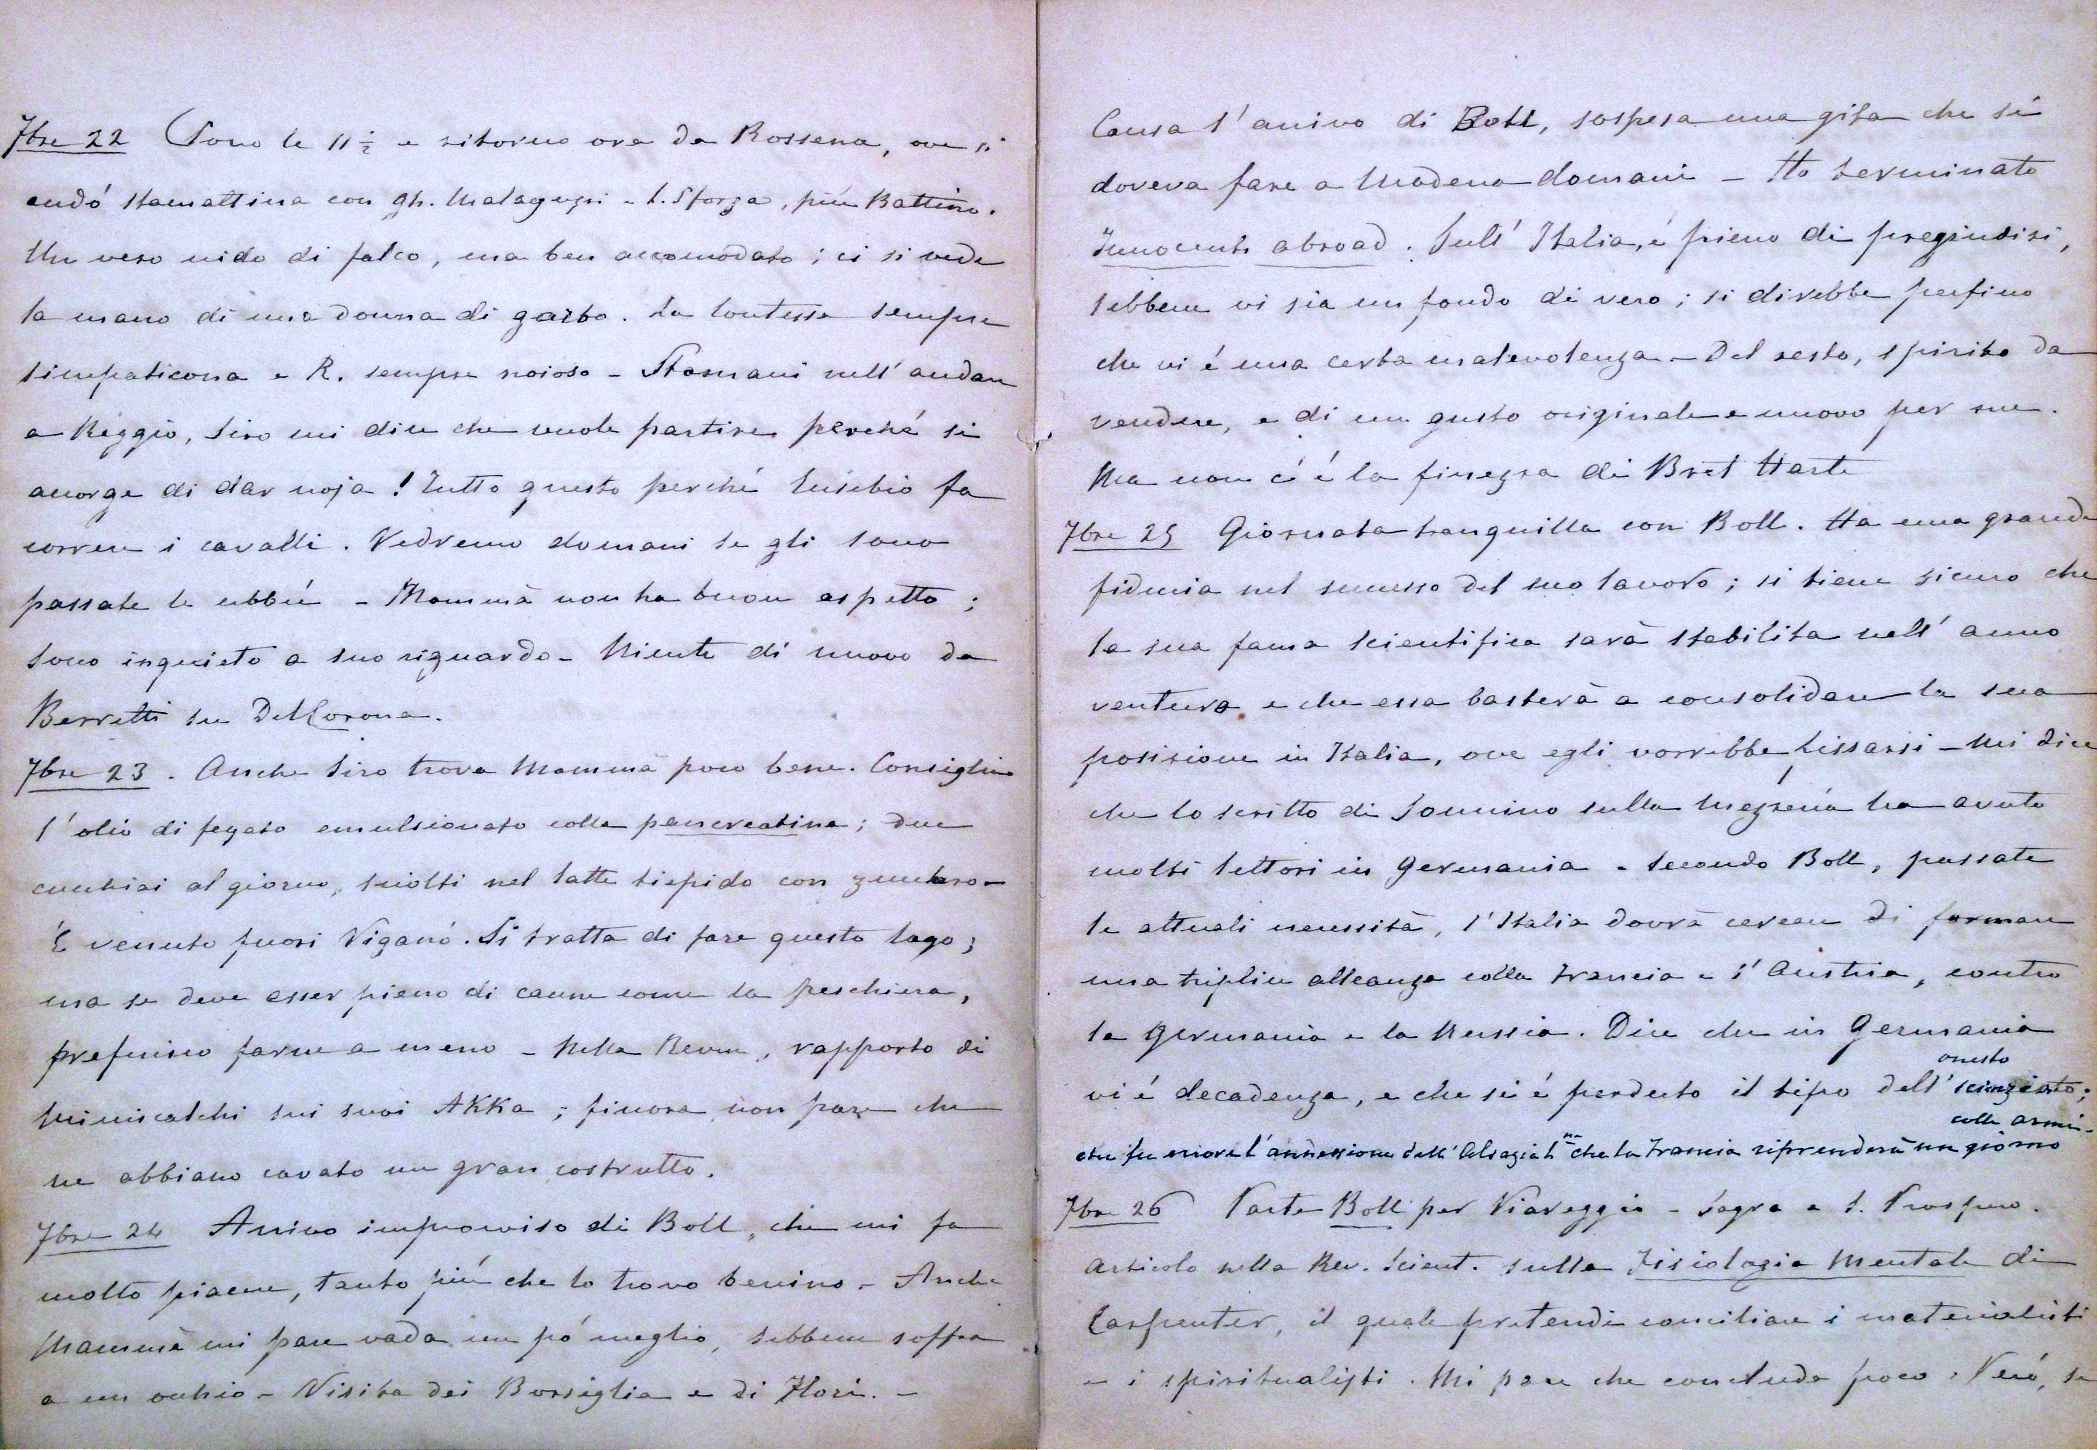 7bre 22 Sono le 11 ½ e ritorno ora da Rossena, ove si
andó stamattina con Gh. Malaguzzi - L. Sforza, più Battino.
Un vero nido di falco, ma ben accomodato; ci si vede
la mano di una donna di garbo. La Contessa sempre
simpaticona e R. sempre noioso - Stamani nell' andare
a Reggio, Siro mi dice che vuole partire perché si
accorge di dar noja! Tutto questo perché Eusebio fa
correre i cavalli. Vedremo domani se gli sono
passate le ubbíe - Mammà non ha buon aspetto;
sono inquieto a suo riguardo - Niente di nuovo da
Berretti su Del Corona.
7bre 23. Anche Siro trova Mammà poco bene. Consiglia
l' olio di fegato emulsionato colla pancreatina; due
cucchiai al giorno, sciolti nel latte tiepido con zucchero -
È venuto fuori Viganó. Si tratta di fare questo lago;
ma se deve esser pieno di canne come la peschiera,
preferisco farne a meno - Nella Revue, rapporto di
Miniscalchi sui suoi Akka; finora non pare che
ne abbiano cavato un gran costrutto.
7bre 24 Arrivo improvviso di Boll, che mi fa
molto piacere, tanto più che lo trovo benino - Anche
Mammà mi pare vada un pó meglio, sebbene soffra
a un occhio - Visita dei Borsiglia e di Flori. -
Causa l' arrivo di Boll, sospesa una gita che si
doveva fare a Modena domani - Ho terminato
Innocents abroad. Sull' Italia, é pieno di pregiudizi,
sebbene vi sia un fondo di vero; si direbbe perfino
che vi é una certa malevolenza - Del resto, spirito da
vendere, e di un gusto originale e nuovo per me.
Ma non c' é la finezza di Bret Harte
7bre 25 Giornata tranquilla con Boll. Ha una grande
fiducia nel successo del suo lavoro; si tiene sicuro che
la sua fama scientifica sarà stabilita nell' anno
venturo e che essa basterà a consolidare la sua
posizione in Italia, ove egli vorrebbe fissarsi - Mi dice
che lo scritto di Sonnino sulla Mezzería ha avuto
molti lettori in Germania - Secondo Boll, passate
le attuali necessità, l' Italia dovrà cercare di formare
una triplice alleanza colla Francia e l' Austria, contro
la Germania e la Russia. Dice che in Germania
vi é decadenza, e che si é perduto il tipo dell' onesto scienziato;
che fu errore l' annessione dell' Alsazia L.na che la Francia riprenderà un giorno colle armi -
7bre 26 Parte Boll per Viareggio - Sagra a S. Prospero.
Articolo nella Rev. Scient. sulla Fisiologia Mentale di
Carpenter, il quale pretende conciliare i materialisti
e i spiritualisti. Mi pare che conclude poco. Però, se